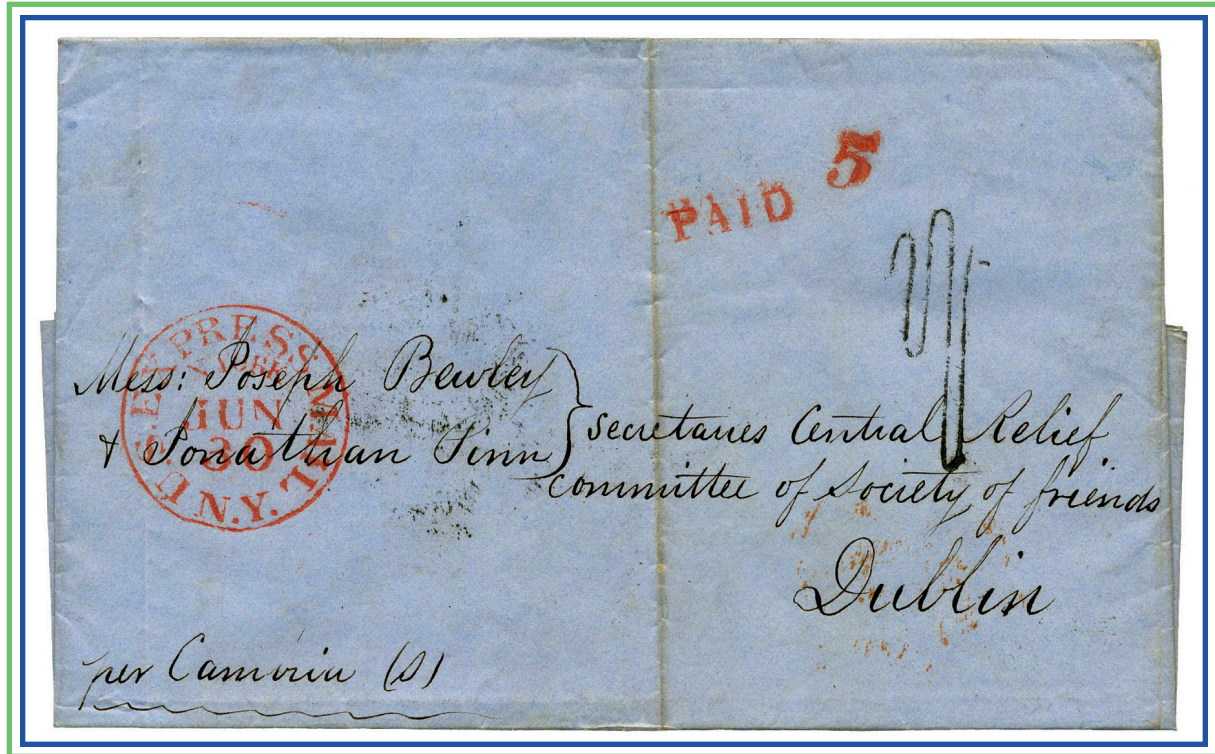 PAID 5
U.S. EXPRESS MAIL N.Y.
N. YORK
JUN
30
Mess: Joseph Bewley
& Jonathan Pim
Secretaries Central Relief
Committee of Society of friends
Dublin
per Cambria (s)